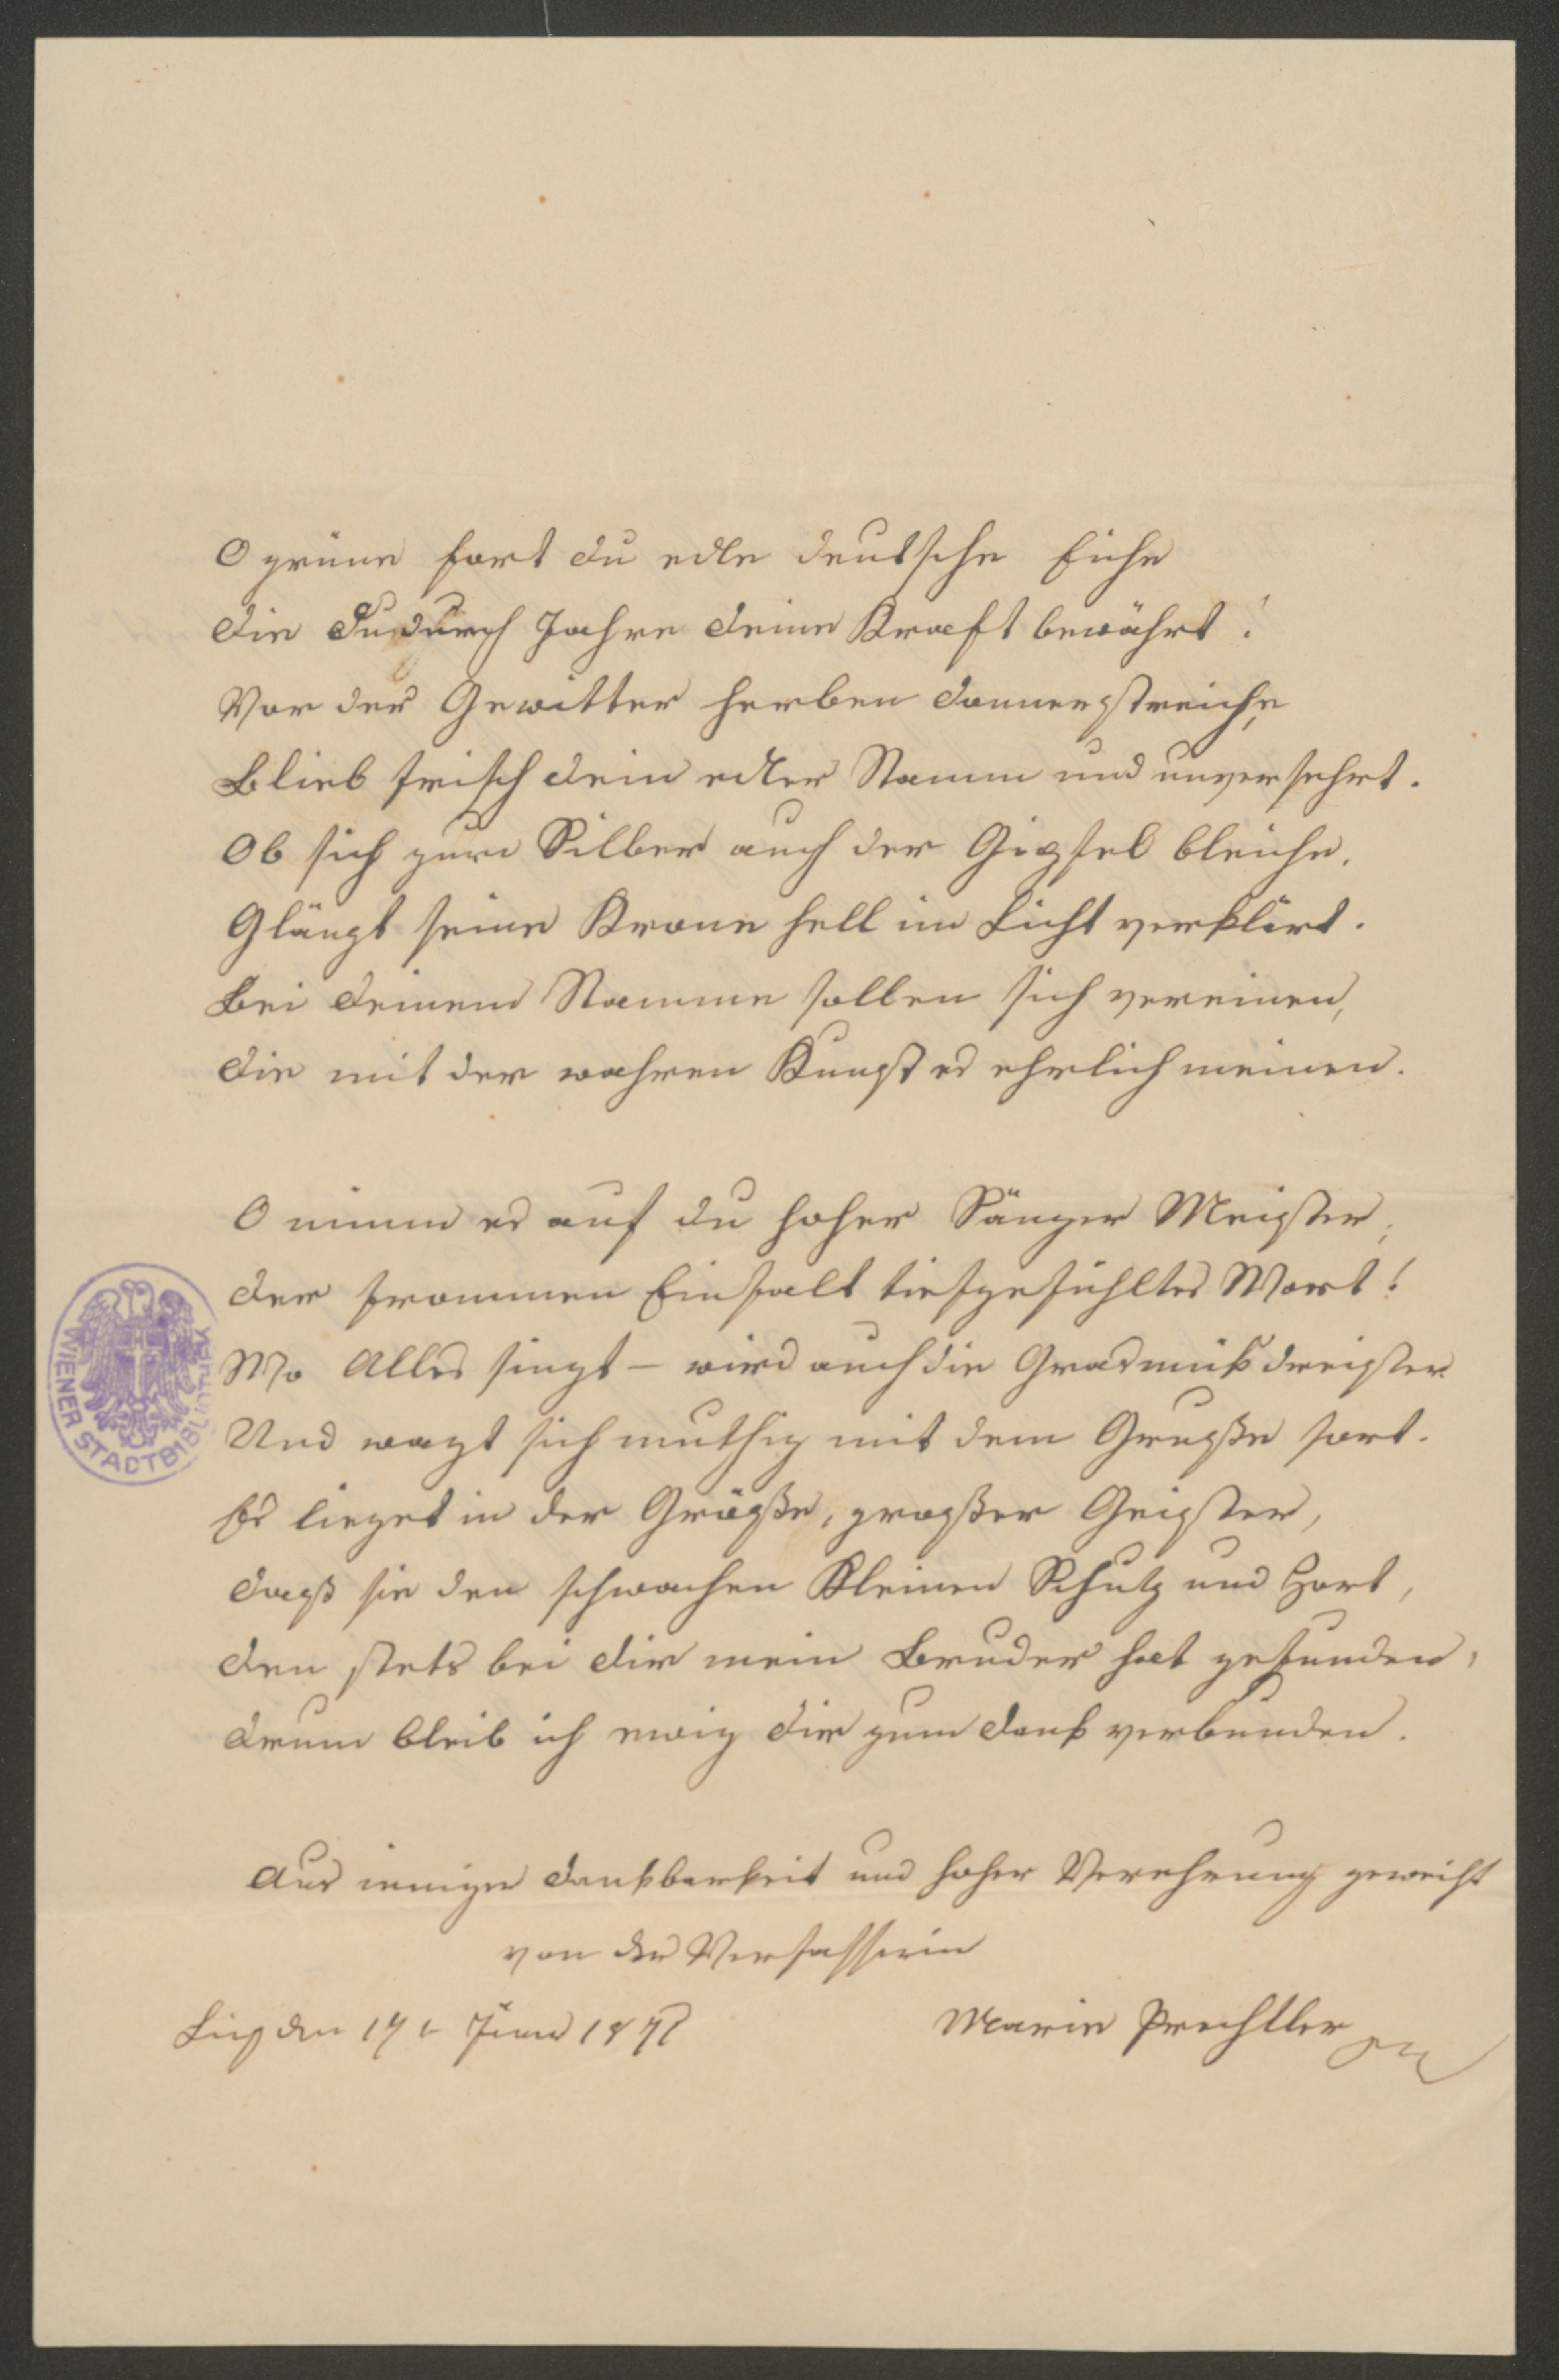 O grüne fort du edle deutsche Eiche
Die Du durch Jahre deine Kraft bewährt!
Vor der Gewitter herben Donnerstreiche,
Blieb frisch dein edler Stamm und unversehrt.
Ob sich zum Silber auch der Gipfel bleiche,
Glänzt seine Krone hell im Licht verklärt.
Bei deinem Stamme sollen sich vereinen,
Die mit der wahren Kunst es ehrlich meinen.
O nimm es auf du hoher Sänger Meister,
Der frommen Einfalt tiefgefühltes Wort!
Wo Alles singt – wird auch die Grasmück dreister
Und wagt sich muthig mit dem Gruße fort.
Es lieget in der Größe, großer Geister,
Daß sie den schwachen Kleinen Schutz und Hort,
Den stets bei dir mein Bruder hat gefunden,
Drum bleib ich ewig dir zum Dank verbunden.
Aus inniger Dankbarkeit und hoher Verehrung geweiht
von der Verfasserin
Linz den Juni Marie Prechtler
WIENER STADTBIBLIOTHEK